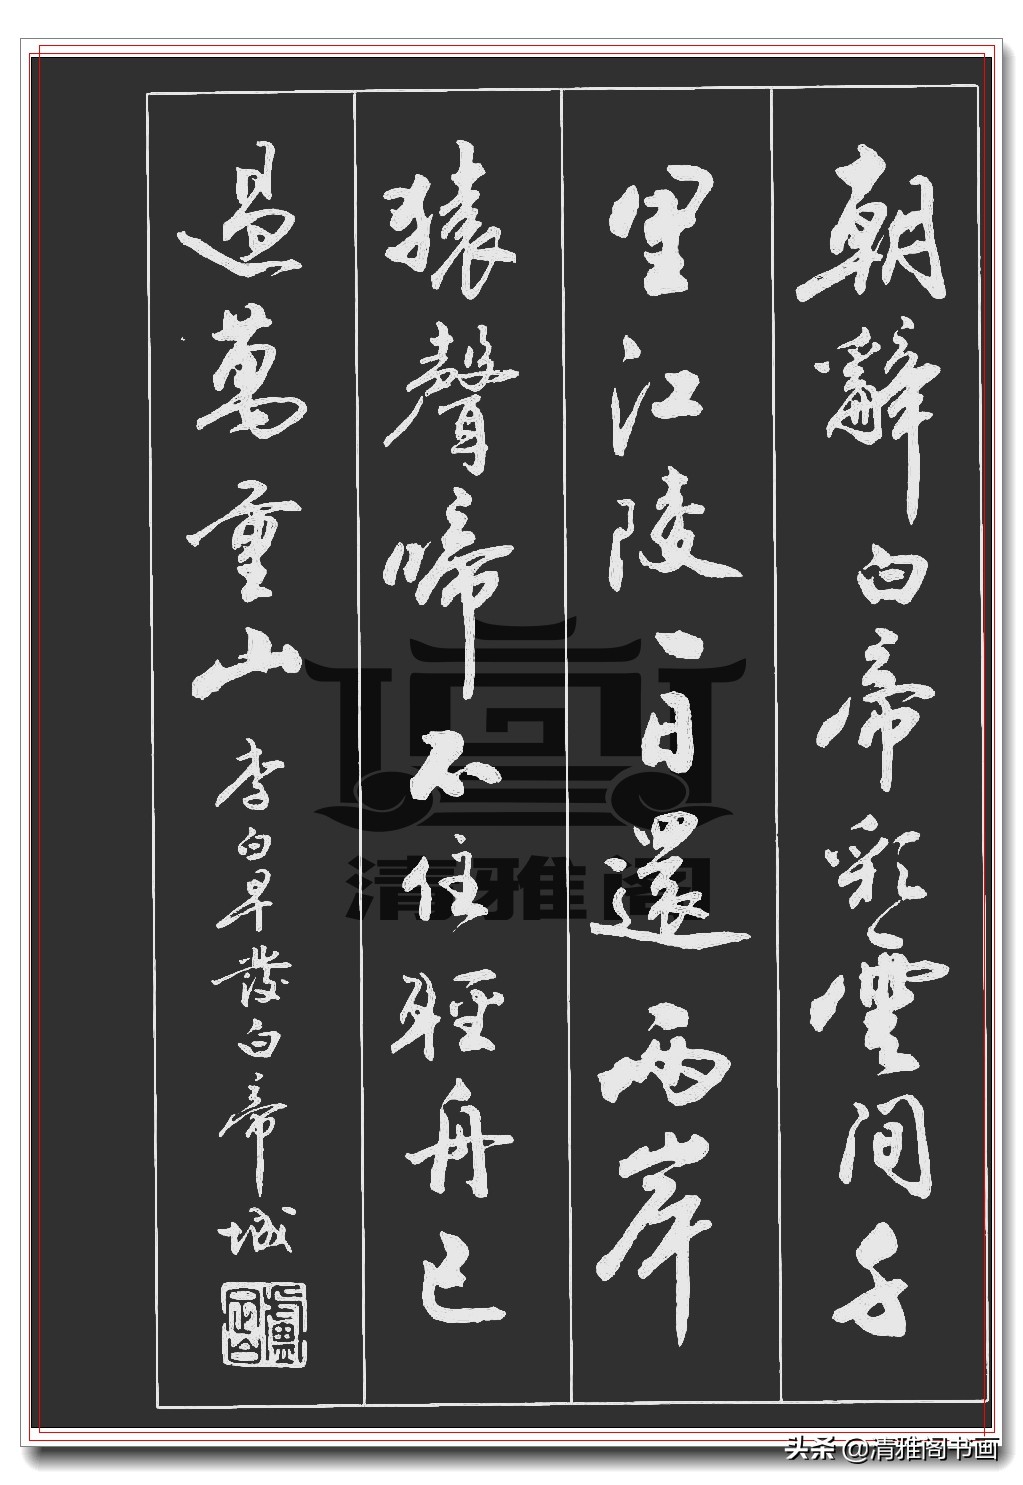 朝辭白帝彩雲間千
里江陵一日還兩岸
猿聲啼不住輕舟已
過萬重山 李白早發白帝城
清雅阁
头条 @清雅阁书画